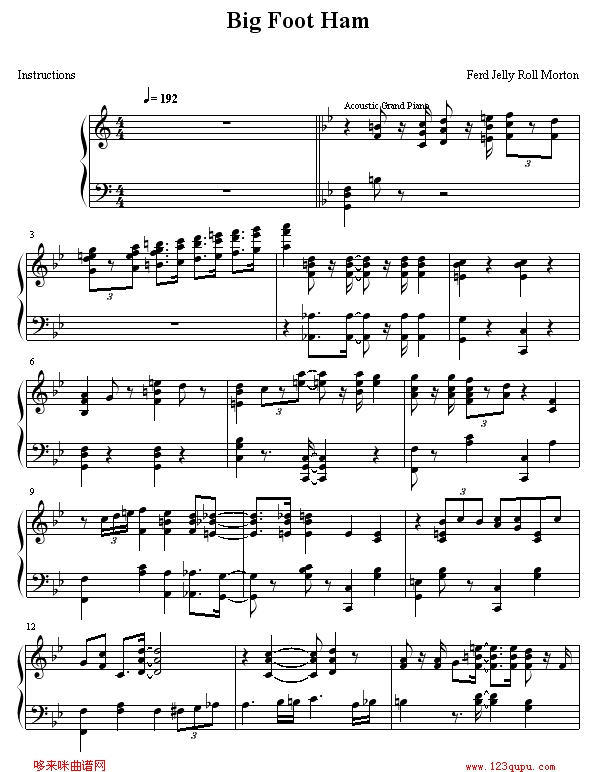 Big Foot Ham
Instructions
Ferd Jelly Roll Morton
♩= 192
Acoustic Grand Piano
4 4
4 4
3
3
3
3
6
3
3
9
3
3
3
12
3
哆来咪曲谱网
www.123qupu.com